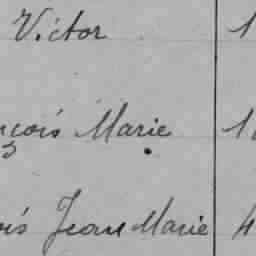 Victor 1
nçois Marie 1
ois Jean Marie 4